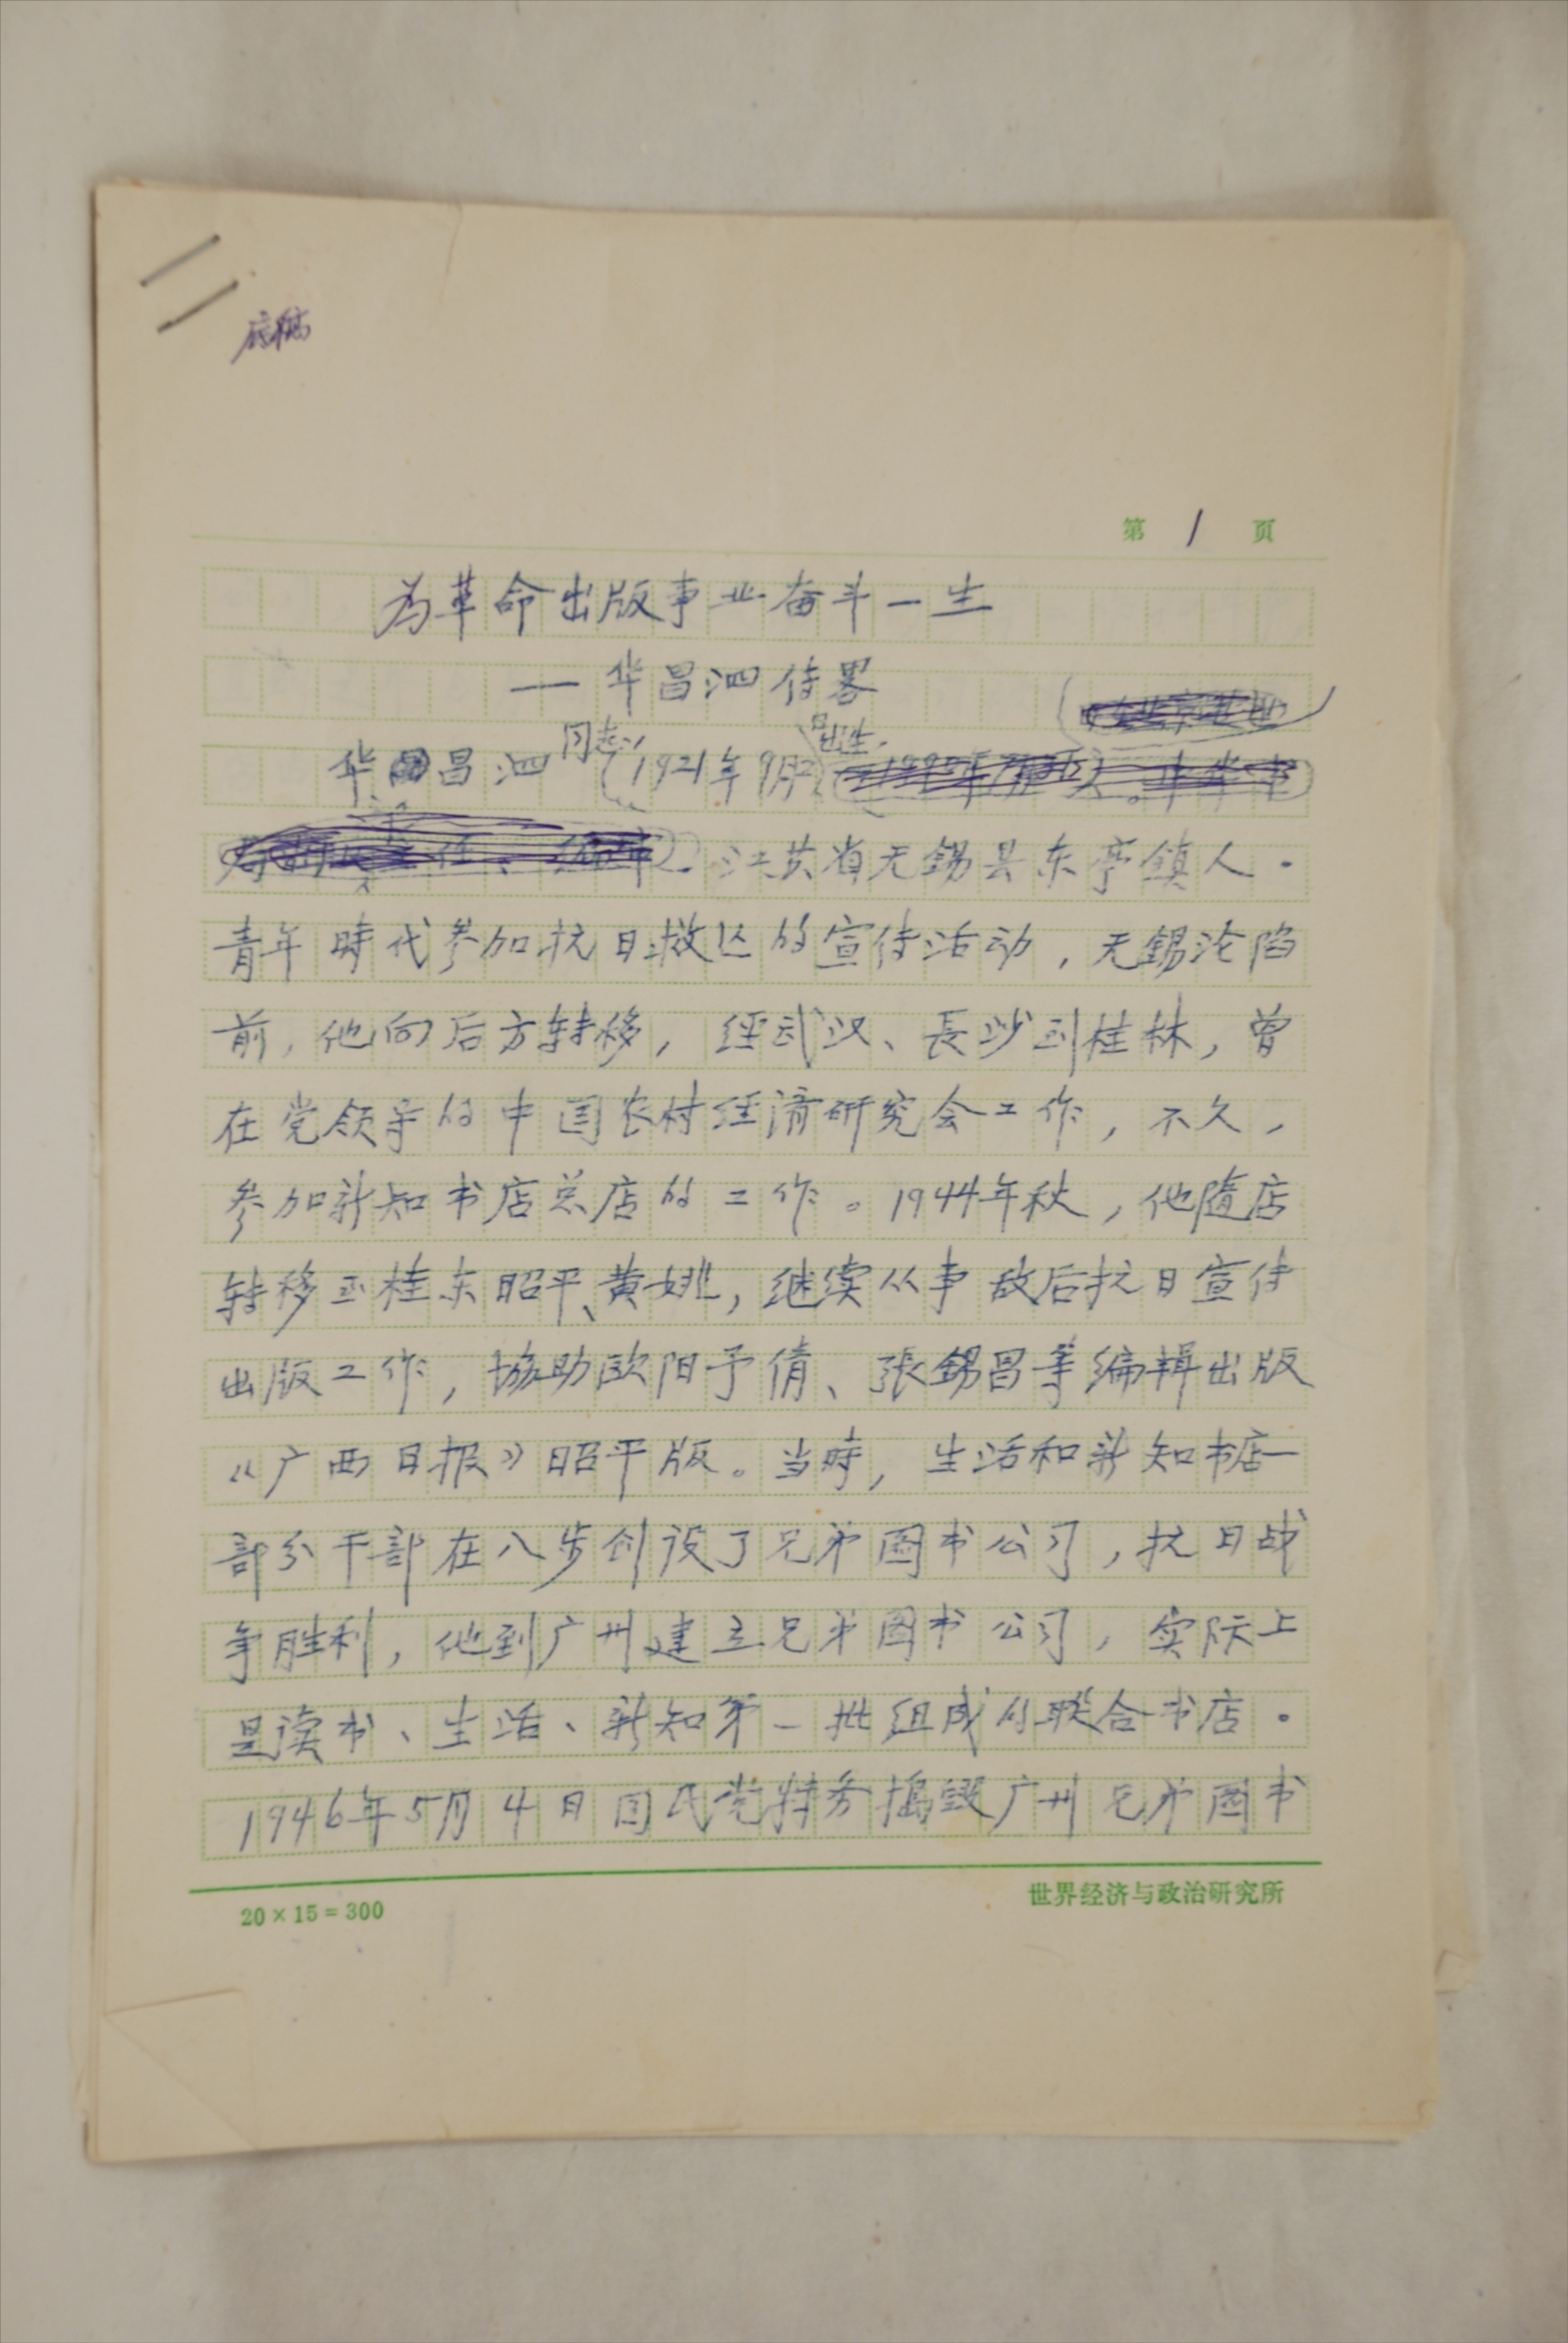 底稿
第 1 页
为革命出版事业奋斗一生
——华昌泗传略
华昌泗同志,1921年9月2日出生,
江苏省无锡县东亭镇人。
青年時代参加抗日救亡的宣传活动,无锡沦陷
前,他向后方转移,经武汉、長沙到桂林,曾
在党领导的中国农村经济研究会工作,不久,
参加新知书店总店的工作。1944年秋,他随店
转移至桂东昭平、黄姚,继续从事敌后抗日宣传
出版工作,协助欧阳予倩、張錫昌等编辑出版
《广西日报》昭平版。当時,生活和新知书店一
部分干部在八步创设了兄弟图书公司,抗日战
争胜利,他到广州建立兄弟图书公司,实际上
是读书、生活、新知第一批组成的联合书店。
1946年5月4日国民党特务捣毁广州兄弟图书
20×15=300
世界经济与政治研究所